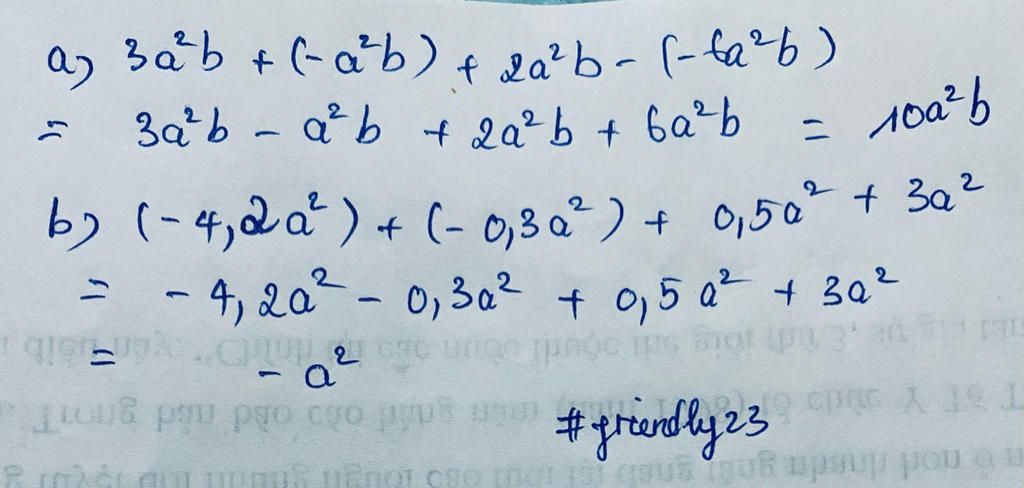 a) 3a²b + (-a²b) + 2a²b - (-6a²b)
= 3a²b - a²b + 2a²b + 6a²b = 10a²b
b) (-4,2a²) + (-0,3a²) + 0,5a² + 3a²
= -4,2a² - 0,3a² + 0,5a² + 3a²
= -a²
#friendly23